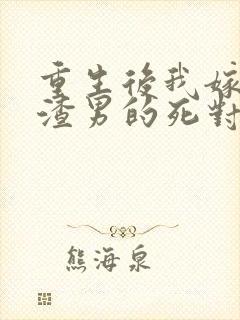 重生後我嫁
渣男的死對
熊海泉